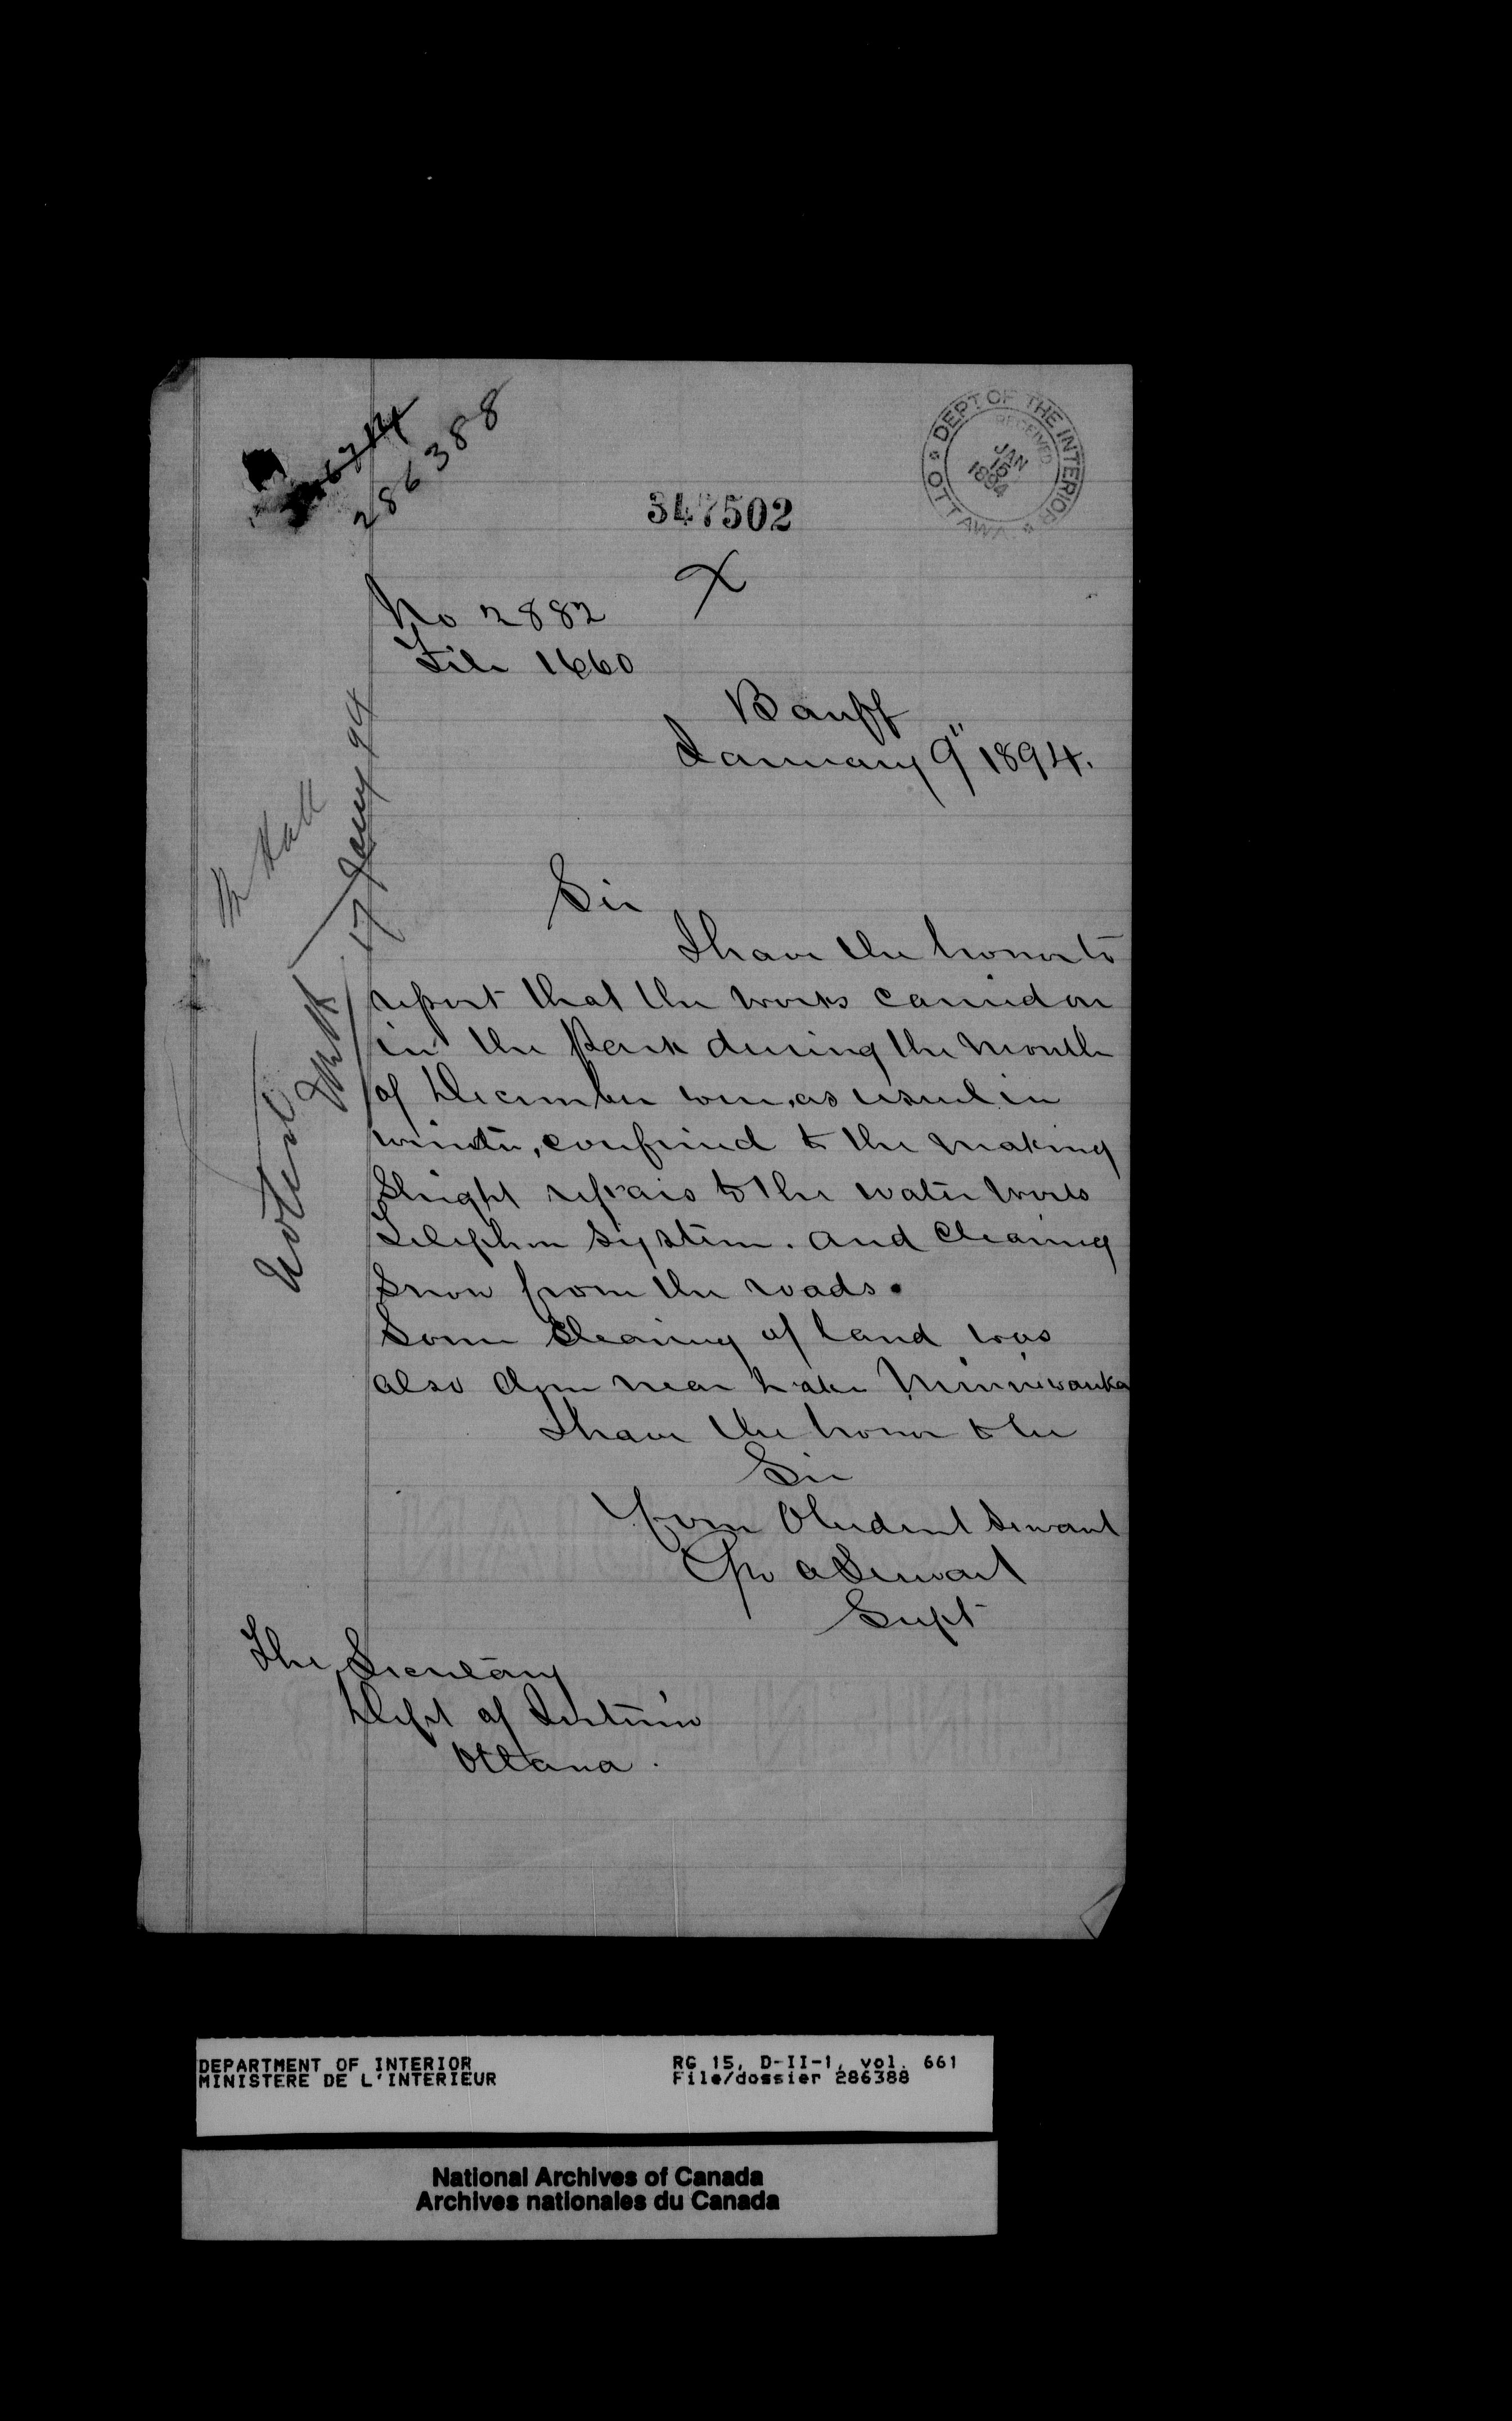 286388
DEPT OF THE INTERIOR
RECEIVED
JAN
15
1894
OTTAWA
347502
X
No 2882
File 1660
Banff
January 9" 1894.
Mr Hall
Noted
17 Jany 94
Sir
I have the honor to
report that the works carried on
in the Park during the month
of December were, as usual in
winter, confined to the making
Slight repairs to the water works
Telephone system. and Clearing
Snow from the roads.
Some Clearing of land was
also done near Lake Minniwanka
I have the honor to be
Sir
Your Obedient Servant
Geo A Stewart
Supt
The Secretary
Dept of Interior
Ottawa.
DEPARTMENT OF INTERIOR
MINISTERE DE L'INTERIEUR
RG 15, D-II-1, vol. 661
File/dossier 286388
National Archives of Canada
Archives nationales du Canada